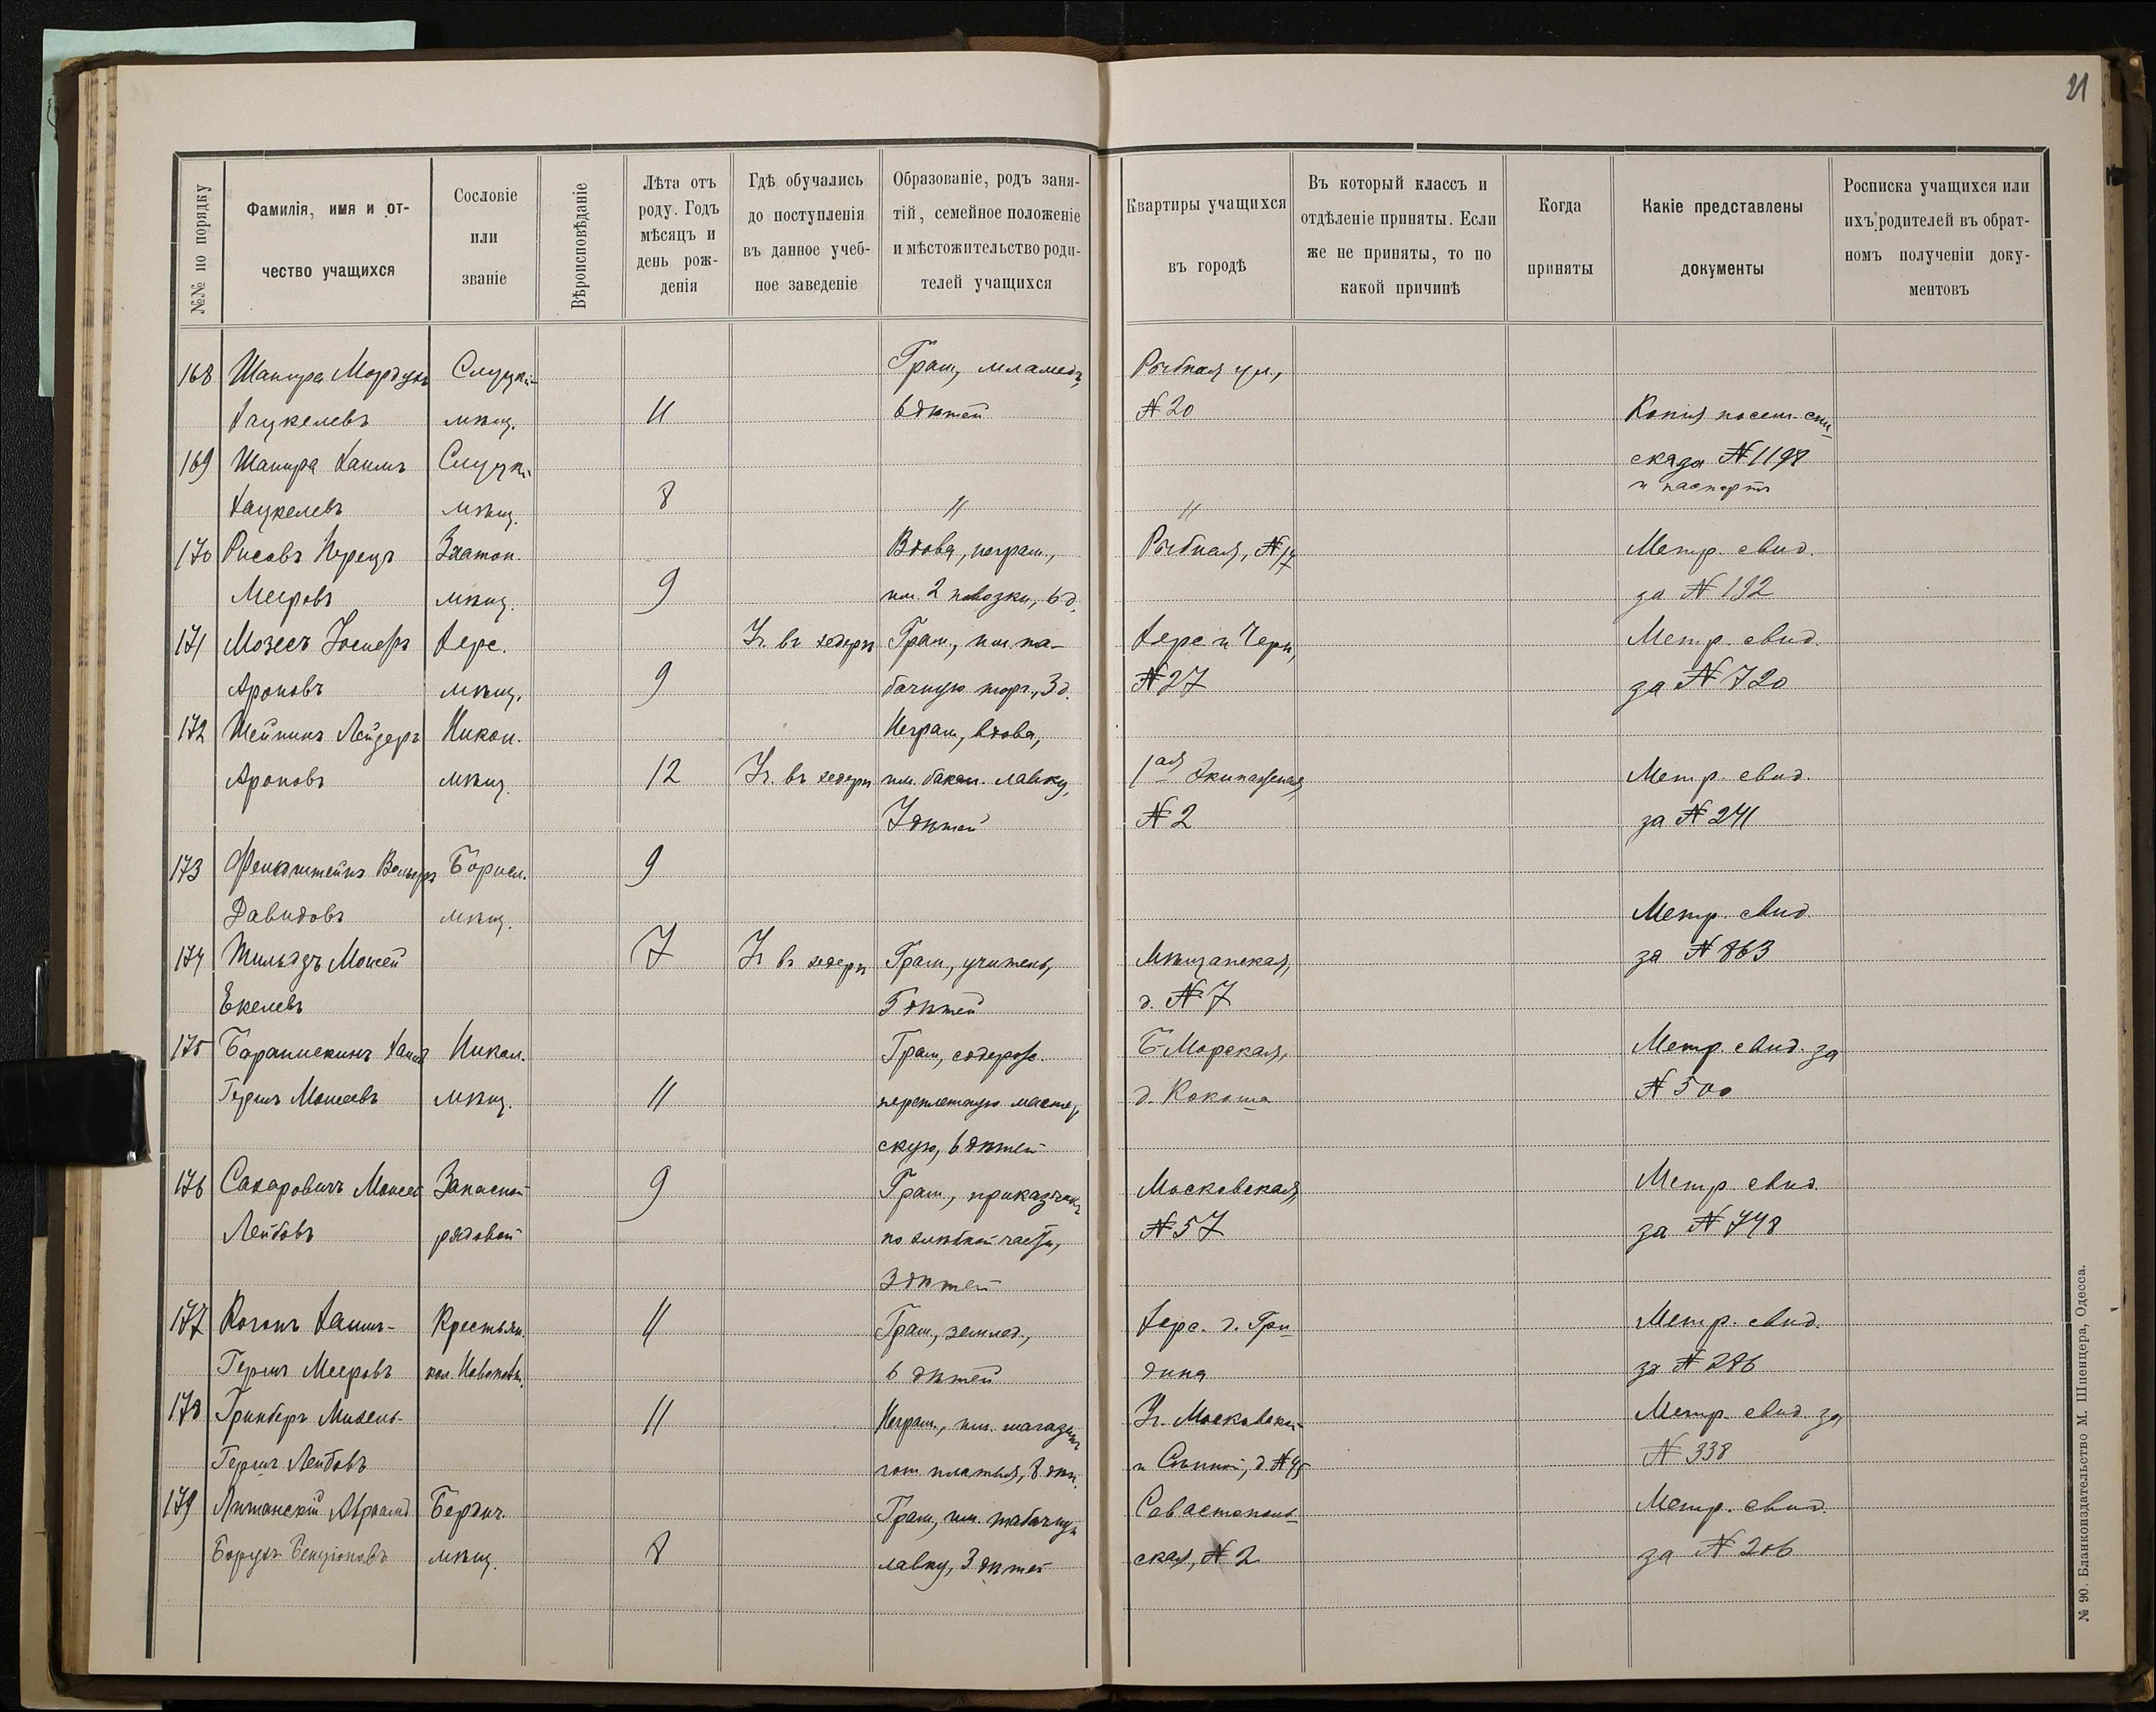 21
№№ по порядку
Фамилія, имя и от-
чество учащихся
Сословіе
или
званіе
Вѣроисповѣданіе
Лѣта отъ
роду. Годъ
мѣсяцъ и
день рож-
денія
Гдѣ обучались
до поступленія
въ данное учеб-
ное заведеніе
Образованіе, родъ заня-
тій, семейное положеніе
и мѣстожительство роди-
телей учащихся
Квартиры учащихся
въ городѣ
Въ который классъ и
отдѣленіе приняты. Если
же не приняты, то по
какой причинѣ
Когда
приняты
Какіе представлены
документы
Росписка учащихся или
ихъ родителей въ обрат-
номъ полученіи доку-
ментовъ
168 Шапира Мордухъ Слуцкі- Грам, меламедъ, Рыбная ул.,
мѣщ. 11 6 дѣтей № 20 Копія посем. спи-
169 Шапира Хаимъ Слуцкі- № 1198
Хацкелевъ мѣщ. 8 " " и паспортъ
170 Рисовъ Перецъ Златоп. Вдова, неграм., Рыбная, № 17 Метр. свид.
Мееровъ мѣщ. 9 им. 2 повозки, 6 д. за № 192
171 Мозесъ Іосифъ Херс. Уч. въ хедерѣ Грам., им. та- Херс и Черн, Метр. свид.
Ароновъ мѣщ. 9 бачную торг., 3 д. № 27 за № 720
172 Шейнинъ Лейзеръ Никол. Неграм, вдова,
Ароновъ мѣщ. 12 Уч. въ хедерѣ им. бакал. лавку, 1ая Экипажеская, Метр. свид.
7 дѣтей № 2 за № 241
173 Вольфъ Борисл. 9
Давидовъ мѣщ. Метр. свид.
174 Моисей 7 Уч въ хедерѣ Грам, учитель, Мѣщанская, за № 863
Екелевъ 5 дѣтей д. № 7
175 Хаимъ Никол. Грам, содерж. Б-Морская, Метр. свид. за
Гершъ Моисеевъ мѣщ. 11 переплетную мастер- д. Кокоша № 500
скую, 6 дѣтей
176 Сахаровичъ Моисей Запасной 9 Грам, приказчикъ Московская, Метр. свид.
Лейбовъ рядовой по хлѣбной части, № 57 за № 748
3 дѣтей
177 Коганъ Хаимъ- Крестьян. 11 Грам, землед., Херс. д. Гри- Метр. свид.
Гершъ Мееровъ кол. 6 дѣтей дина за № 286
178 Гринберъ Михель- 11 Неграм., им. магазинъ Уг. Московской Метр. свид. за
Гершъ Лейбовъ гот. платья, 8 дѣт. и Сѣнной, д. № 45 № 338
179 Литанскій Авраамъ Бердич. Грам, им. табачную Севастополь- Метр. свид.
Борухъ Бенціоновъ мѣщ. 8 лавку, 3 дѣтей ская, № 2 за № 206
№ 90. Бланкоиздательство М. Шпенцера, Одесса.